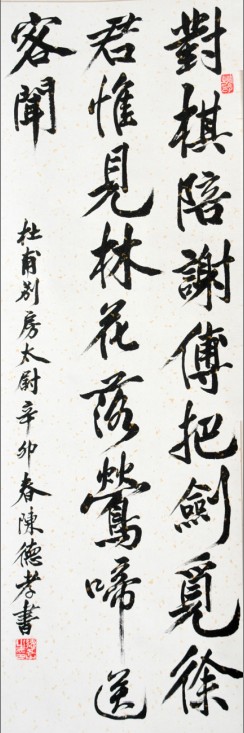 對棋陪謝傅把劍覓徐
君惟見林花落鶯啼送
客聞
杜甫别房太尉辛卯春陳德孝書